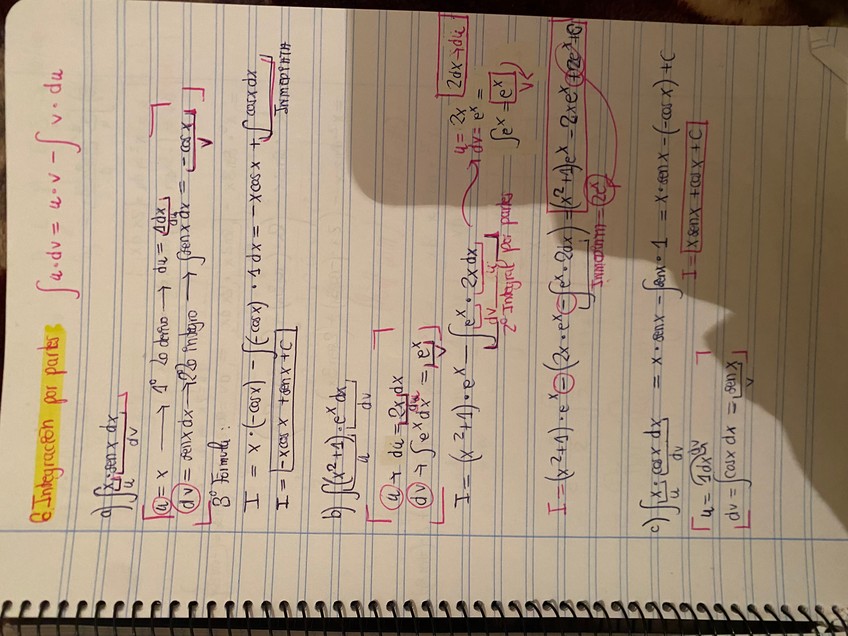 6. Integración por partes: ∫u·dv = u·v - ∫v·du
a) ∫x·senx dx
u dv
u = x → 1º lo derivo → du = 1dx
du
dv = senx dx → 2º lo integro → ∫senx dx = -cosx
v
3º Formula:
I = x·(-cosx) - ∫(-cosx)·1dx = -xcosx + ∫cosxdx
INMEDIATA
I = -xcosx + senx + C
b) ∫(x²+1)·eˣdx
u dv
u → du = 2xdx
du
dv → ∫eˣdx = eˣ
v
I = (x²+1)·eˣ - ∫eˣ·2xdx
dv u
2º Integral por partes
u = 2x
2dx → du
dv = eˣ =
∫eˣ = eˣ
v
I = (x²+1)·eˣ - (2x·eˣ - ∫eˣ·2dx) = (x²+1)eˣ - 2xeˣ + 2eˣ + C
Inmediata = 2eˣ
c) ∫x·cosx dx = x·senx - ∫senx·1 = x·senx - (-cosx) + C
u dv
u = 1dx du
I = xsenx + cosx + C
dv = ∫cosx dx = senx
v